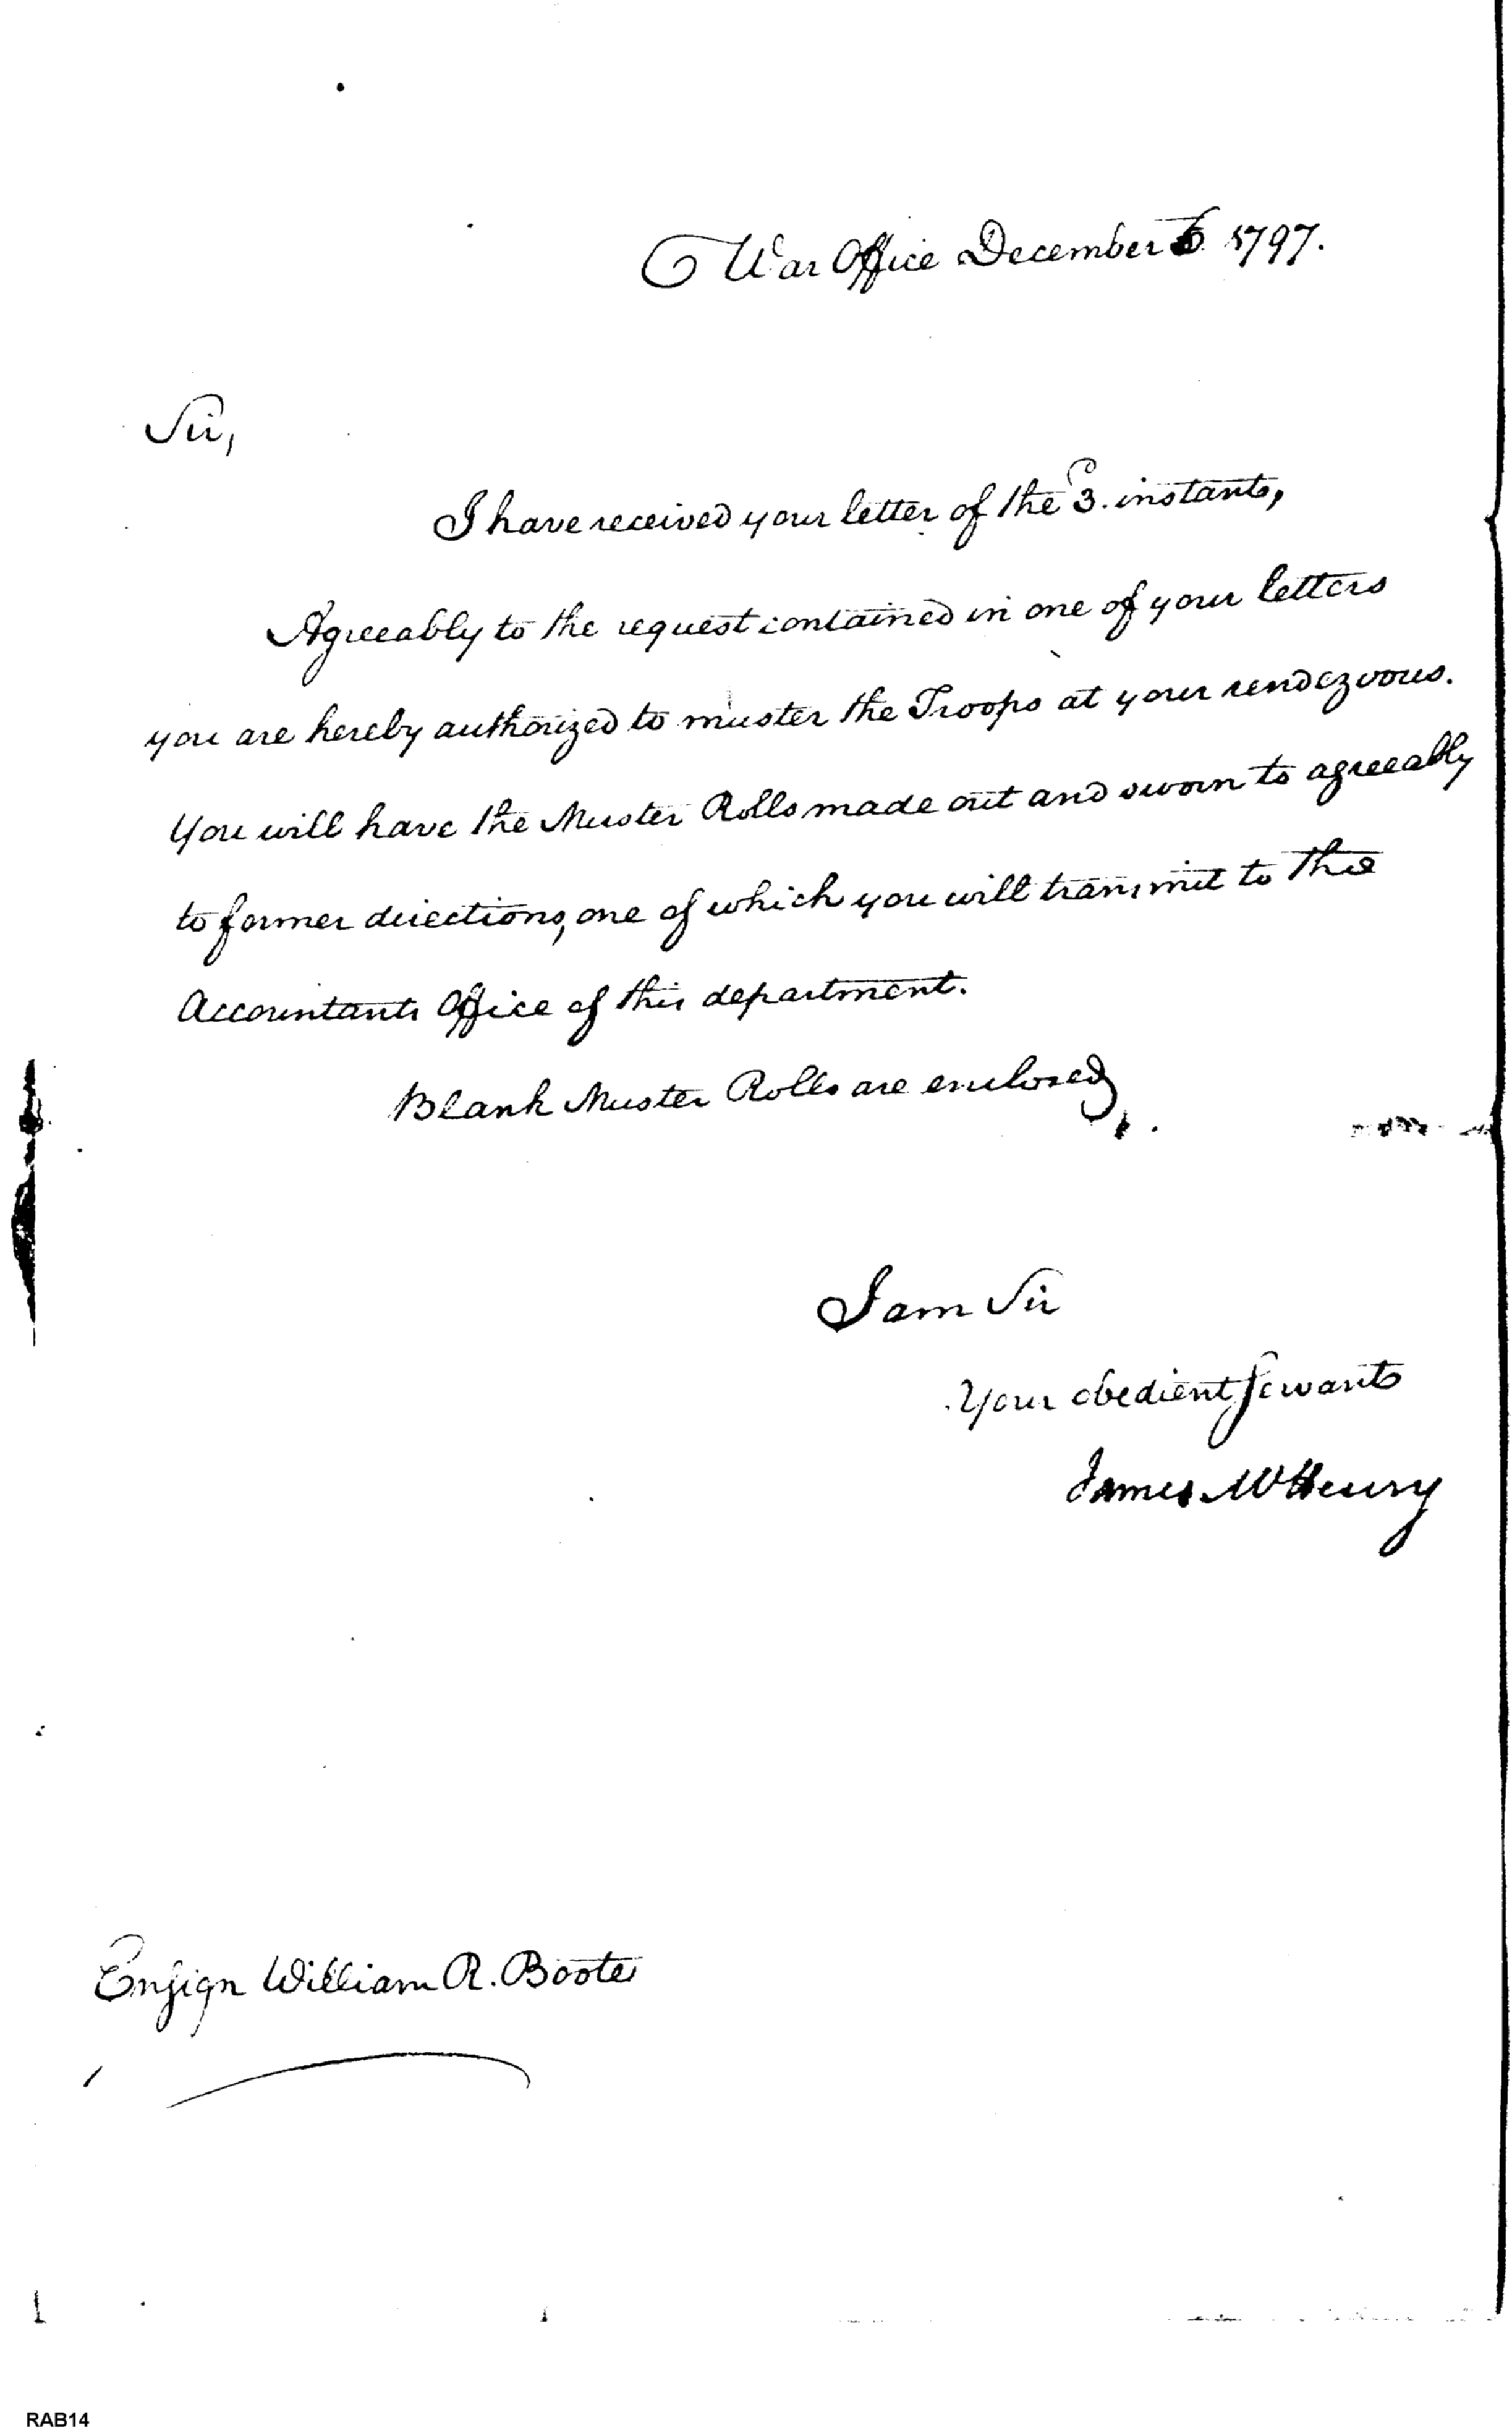 War Office December 1797.
Sir,
I have received your letter of the 3. instant,
Agreeably to the request contained in one of your letters
you are hereby authorized to muster the Troops at your rendezvous.
You will have the Muster Rolls made out and sworn to agreeably
to former directions, one of which you will transmit to the
Accountants Office of this department.
Blank Muster Rolls are enclosed.
I am Sir
Your obedient Servant
James McHenry
Ensign William R. Boote
RAB14